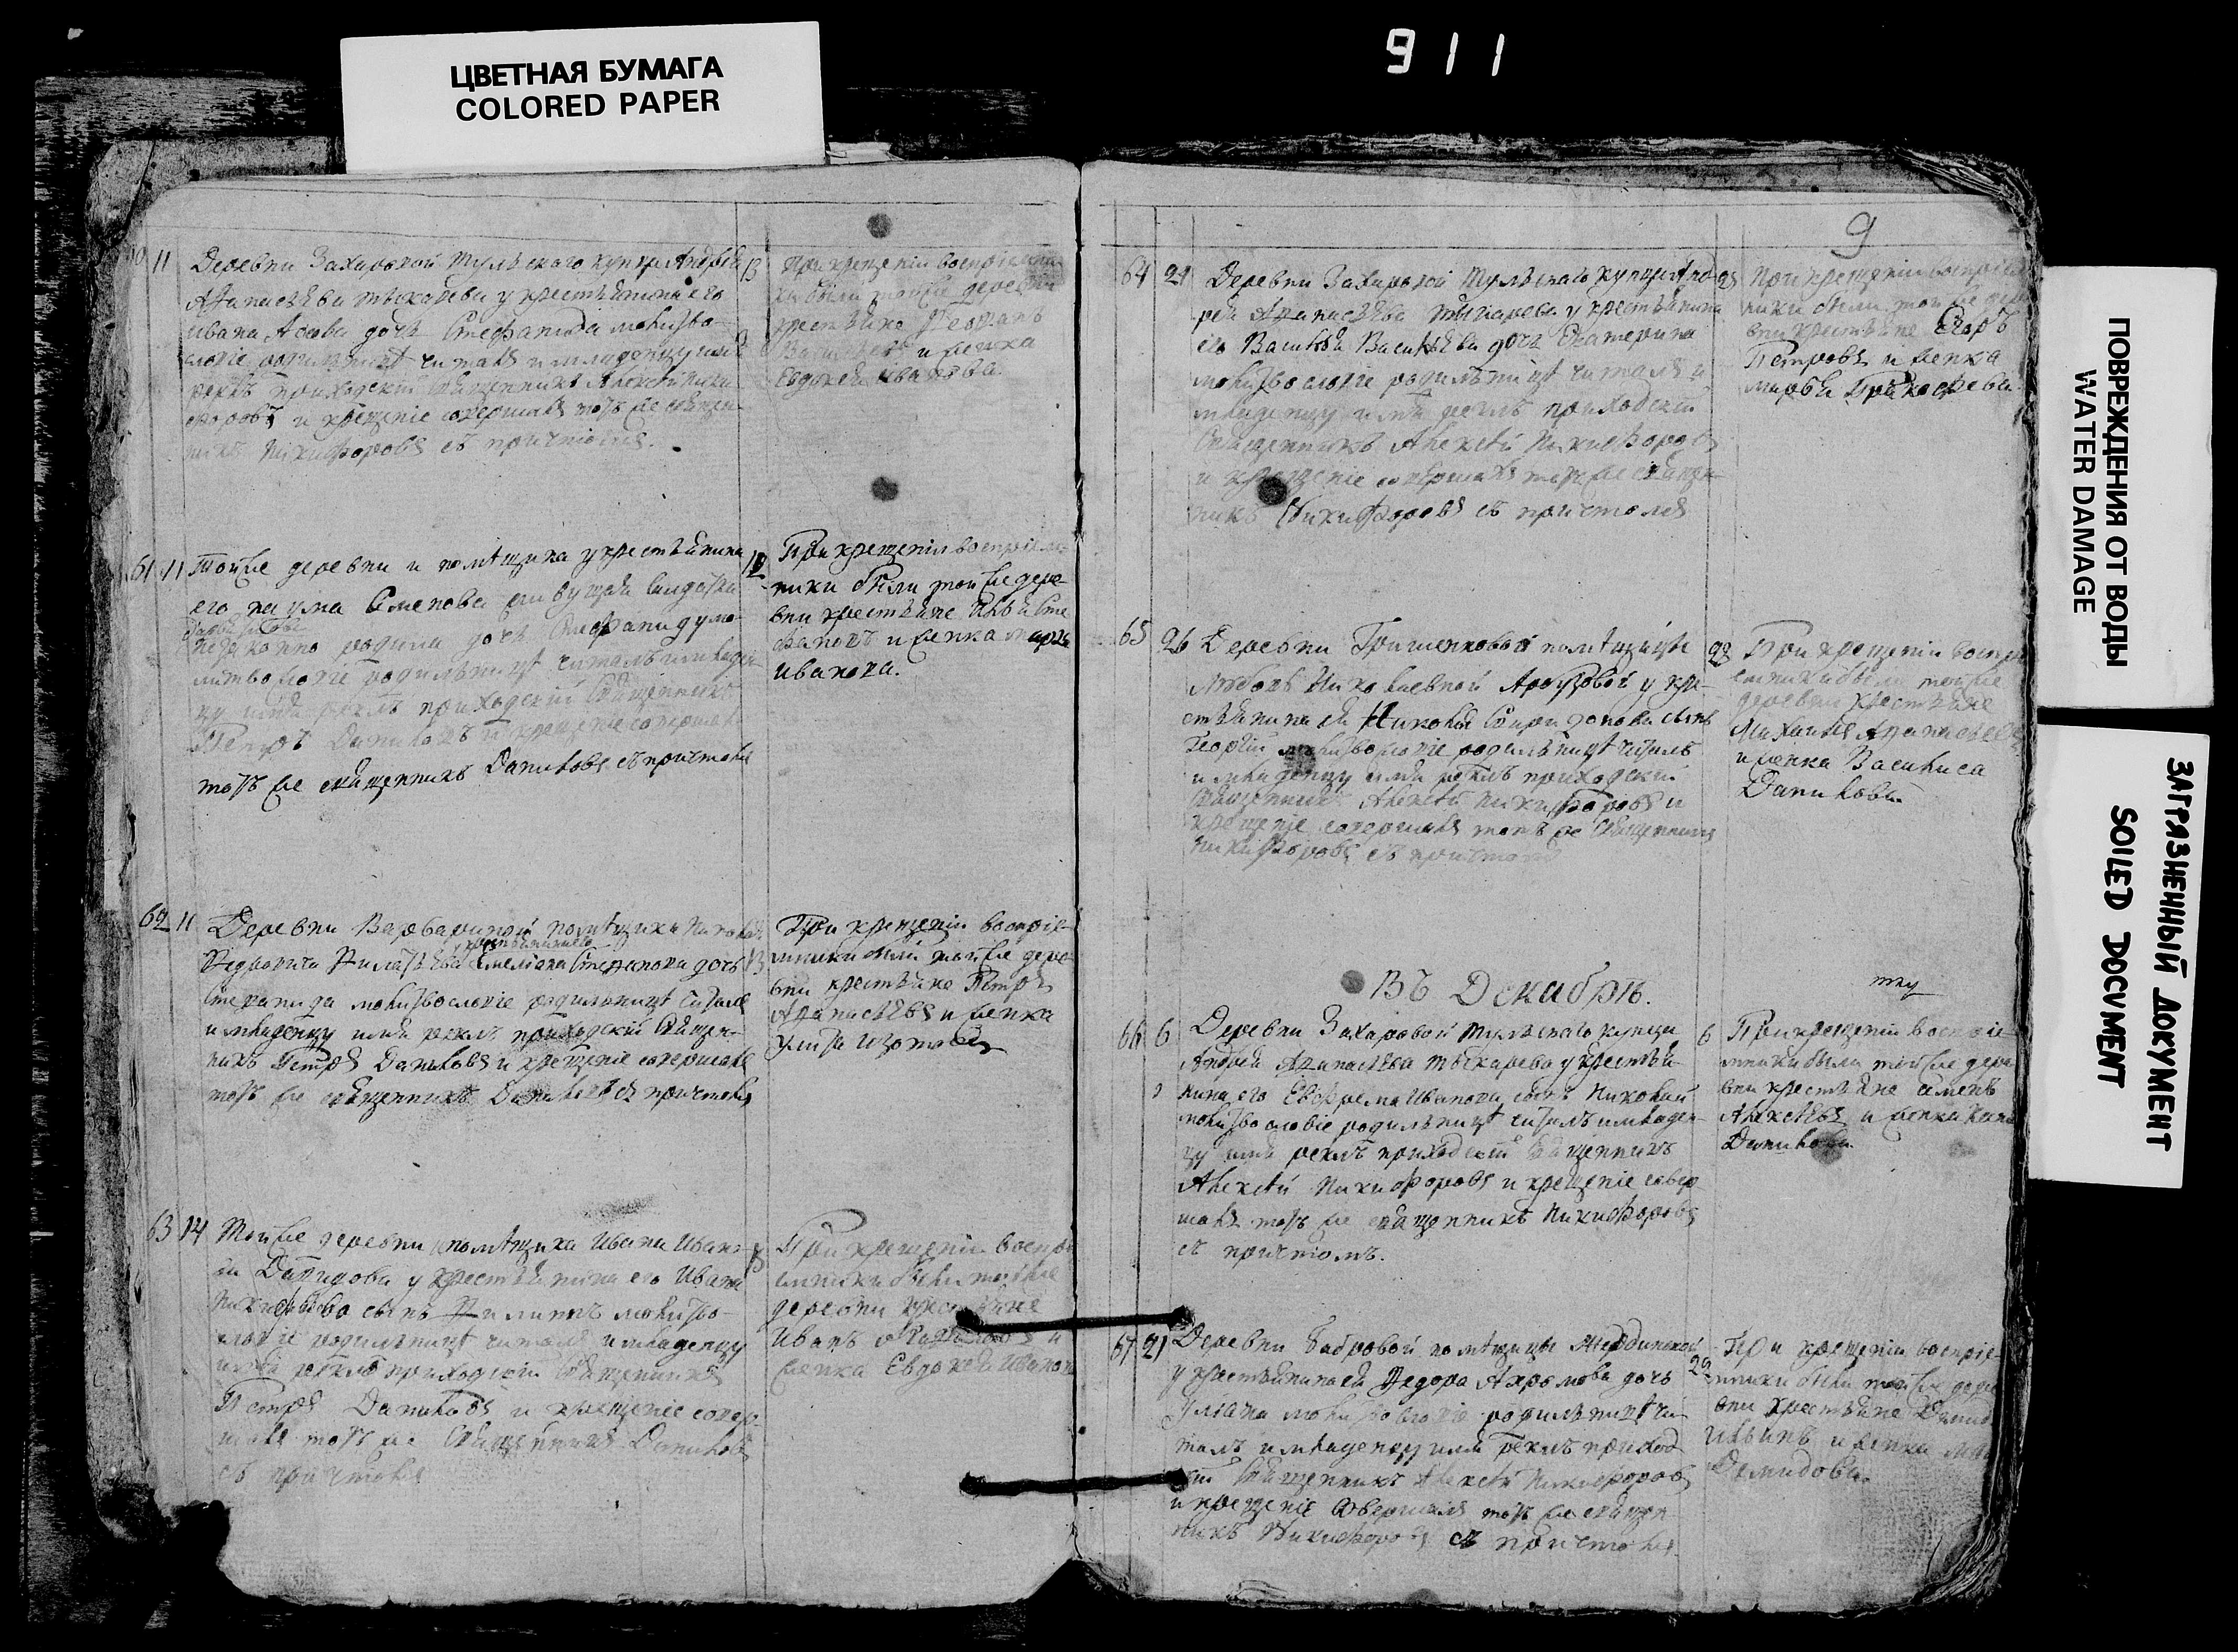 ЦВЕТНАЯ БУМАГА
COLORED PAPER
911
11 Деревни Захаровой Тульскаго купца Андрея
13
Аѳанасьева у крестьянина его
Ивана дочь Стефанида молитво-
словіе родильницѣ читалъ и младенцу имя
реклъ приходскій священникъ Алексѣй Ники-
форовъ и крещеніе совершалъ тотъ же священ-
никъ Никифоровъ съ причтомъ.
При крещеніи воспріемни-
ки были той же деревни
крестьяне
Васильевъ и женка
Евдокея Иванова.
61 11 Той же деревни и помѣщика у крестьянина
его Наума Семенова
незаконно родила дочь Стефаниду мо-
литвословіе родильницѣ читалъ и младен-
цу имя реклъ приходскій священникъ
Петръ Даниловъ и крещеніе совершалъ
тотъ же священникъ Даниловъ съ причтомъ
12
При крещеніи воспріем-
ники были той же дере-
вни крестьяне Илья Сте-
фановъ и женка Марѳа
Иванова.
62 11 Деревни Варвариной помѣщика Никола
у крестьянина его
Емельяна Степанова дочь
13
Степанида молитвословіе родильницѣ читалъ
и младенцу имя реклъ приходскій священ-
никъ Петръ Даниловъ и крещеніе совершалъ
тотъ же священникъ Даниловъ съ причтомъ
При крещеніи воспріе-
мники были той же дере-
вни крестьяне Петръ
Аѳанасьевъ и женка
Улита Изотова
63 14 Той же деревни помѣщика Ивана Иван-
Давидова у крестьянина его Ивана
сынъ Филиппъ молитво-
словіе родильницѣ читалъ и младенцу
имя реклъ приходскій священникъ
Петръ Даниловъ и крещеніе совер-
шалъ тотъ же священникъ Даниловъ
съ причтомъ
При крещеніи воспрі-
емники были той же
деревни крестьяне
Иванъ и
женка Евдокея Иванова
9
64 21 Деревни Захаровой Тульскаго купца Анд-
рея Аѳанасьева у крестьянина
его Василья Васильева дочь Екатерина
молитвословіе родильницѣ читалъ и
младенцу имя реклъ приходскій
священникъ Алексѣй Никифоровъ
и крещеніе совершалъ тотъ же священ-
никъ Никифоровъ съ причтомъ
При крещеніи воспріем-
ники были той же дере-
вни крестьяне Егоръ
Петровъ и женка
Марья
65 26 Деревни Гришенковой помѣщицы
Любовь Николаевной Арбузовой у кре-
стьянина ей Николы Спиридонова сынъ
Георгій молитвословіе родильницѣ читалъ
и младенцу имя реклъ приходскій
священникъ Алексѣй Никифоровъ и
крещеніе совершалъ тотъ же священникъ
Никифоровъ съ причтомъ
При крещеніи воспрі-
емники были той же
деревни крестьяне
Михаилъ Аѳанасьевъ
и женка Василиса
Данилова
Въ Декабрѣ.
66 6 Деревни Захаровой Тульскаго купца
Андрея Аѳанасьева у крестья-
нина его Ефрема Иванова сынъ Николай
молитвословіе родильницѣ читалъ и младен-
цу имя реклъ приходскій священникъ
Алексѣй Никифоровъ и крещеніе совер-
шалъ тотъ же священникъ Никифоровъ
съ причтомъ.
6
При крещеніи воспріе-
мники были той же дере-
вни крестьяне Семенъ
Алексѣевъ и женка
Данилова.
67 21 Деревни Бабровой помѣщицы
у крестьянина ей Федора дочь
Ульяна молитвословіе родильницѣ чи-
талъ и младенцу имя реклъ приход-
скій священникъ Алексѣй Никифоровъ
и крещеніе совершалъ тотъ же священ-
никъ Никифоровъ съ причтомъ.
При крещеніи воспріе-
мники были той же дере-
вни крестьяне
Ильинъ и женка
Демидова.
ПОВРЕЖДЕНИЯ ОТ ВОДЫ
WATER DAMAGE
ЗАГРЯЗНЕННЫЙ ДОКУМЕНТ
SOILED DOCUMENT